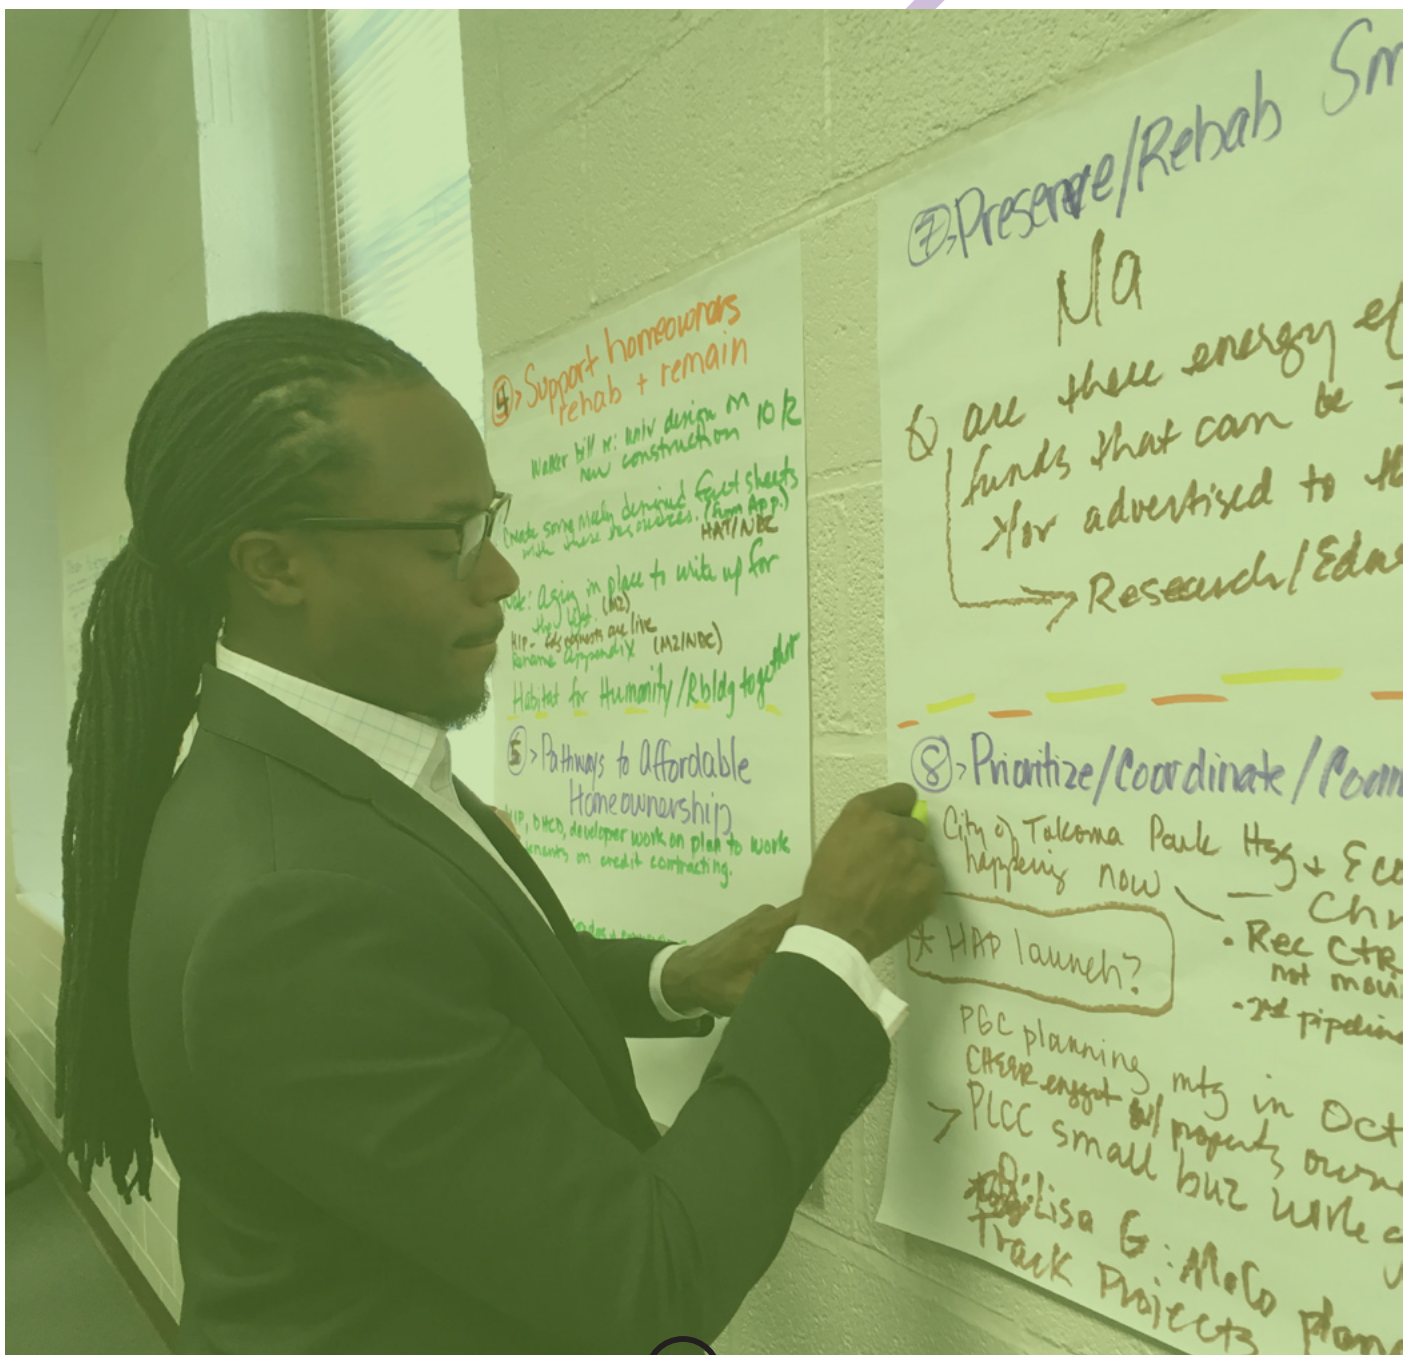 4 > Support homeowners
rehab + remain
Walker bill re: univ design in
new construction 10/2
Create some nicely designed fact sheets
with these resources. (from App.)
HAT/NDC
Note: Aging in place to write up for
the list. (M2)
HIP - are live
Rename appendix (M2/NDC)
Habitat for Humanity/Rbldg together
5 > Pathways to Affordable
Homeownership
HIP, DHCD, developer work on plan to work
on credit contracting.
7 > Preserve/Rehab Sm
Ma
Q are there energy ef
funds that can be
&/or advertised to th
Research/Educ
8 > Prioritize/Coordinate/Comm
City of Takoma Park Hsg + Eco
happening now — Chr
* HAP launch?
• Rec Ctr
not movi
• 2nd pipeline
PGC planning mtg in Oct
CHEER enggt w/ property owne
> PLCC small buz work g
Lisa G: MoCo plan
Track Projects